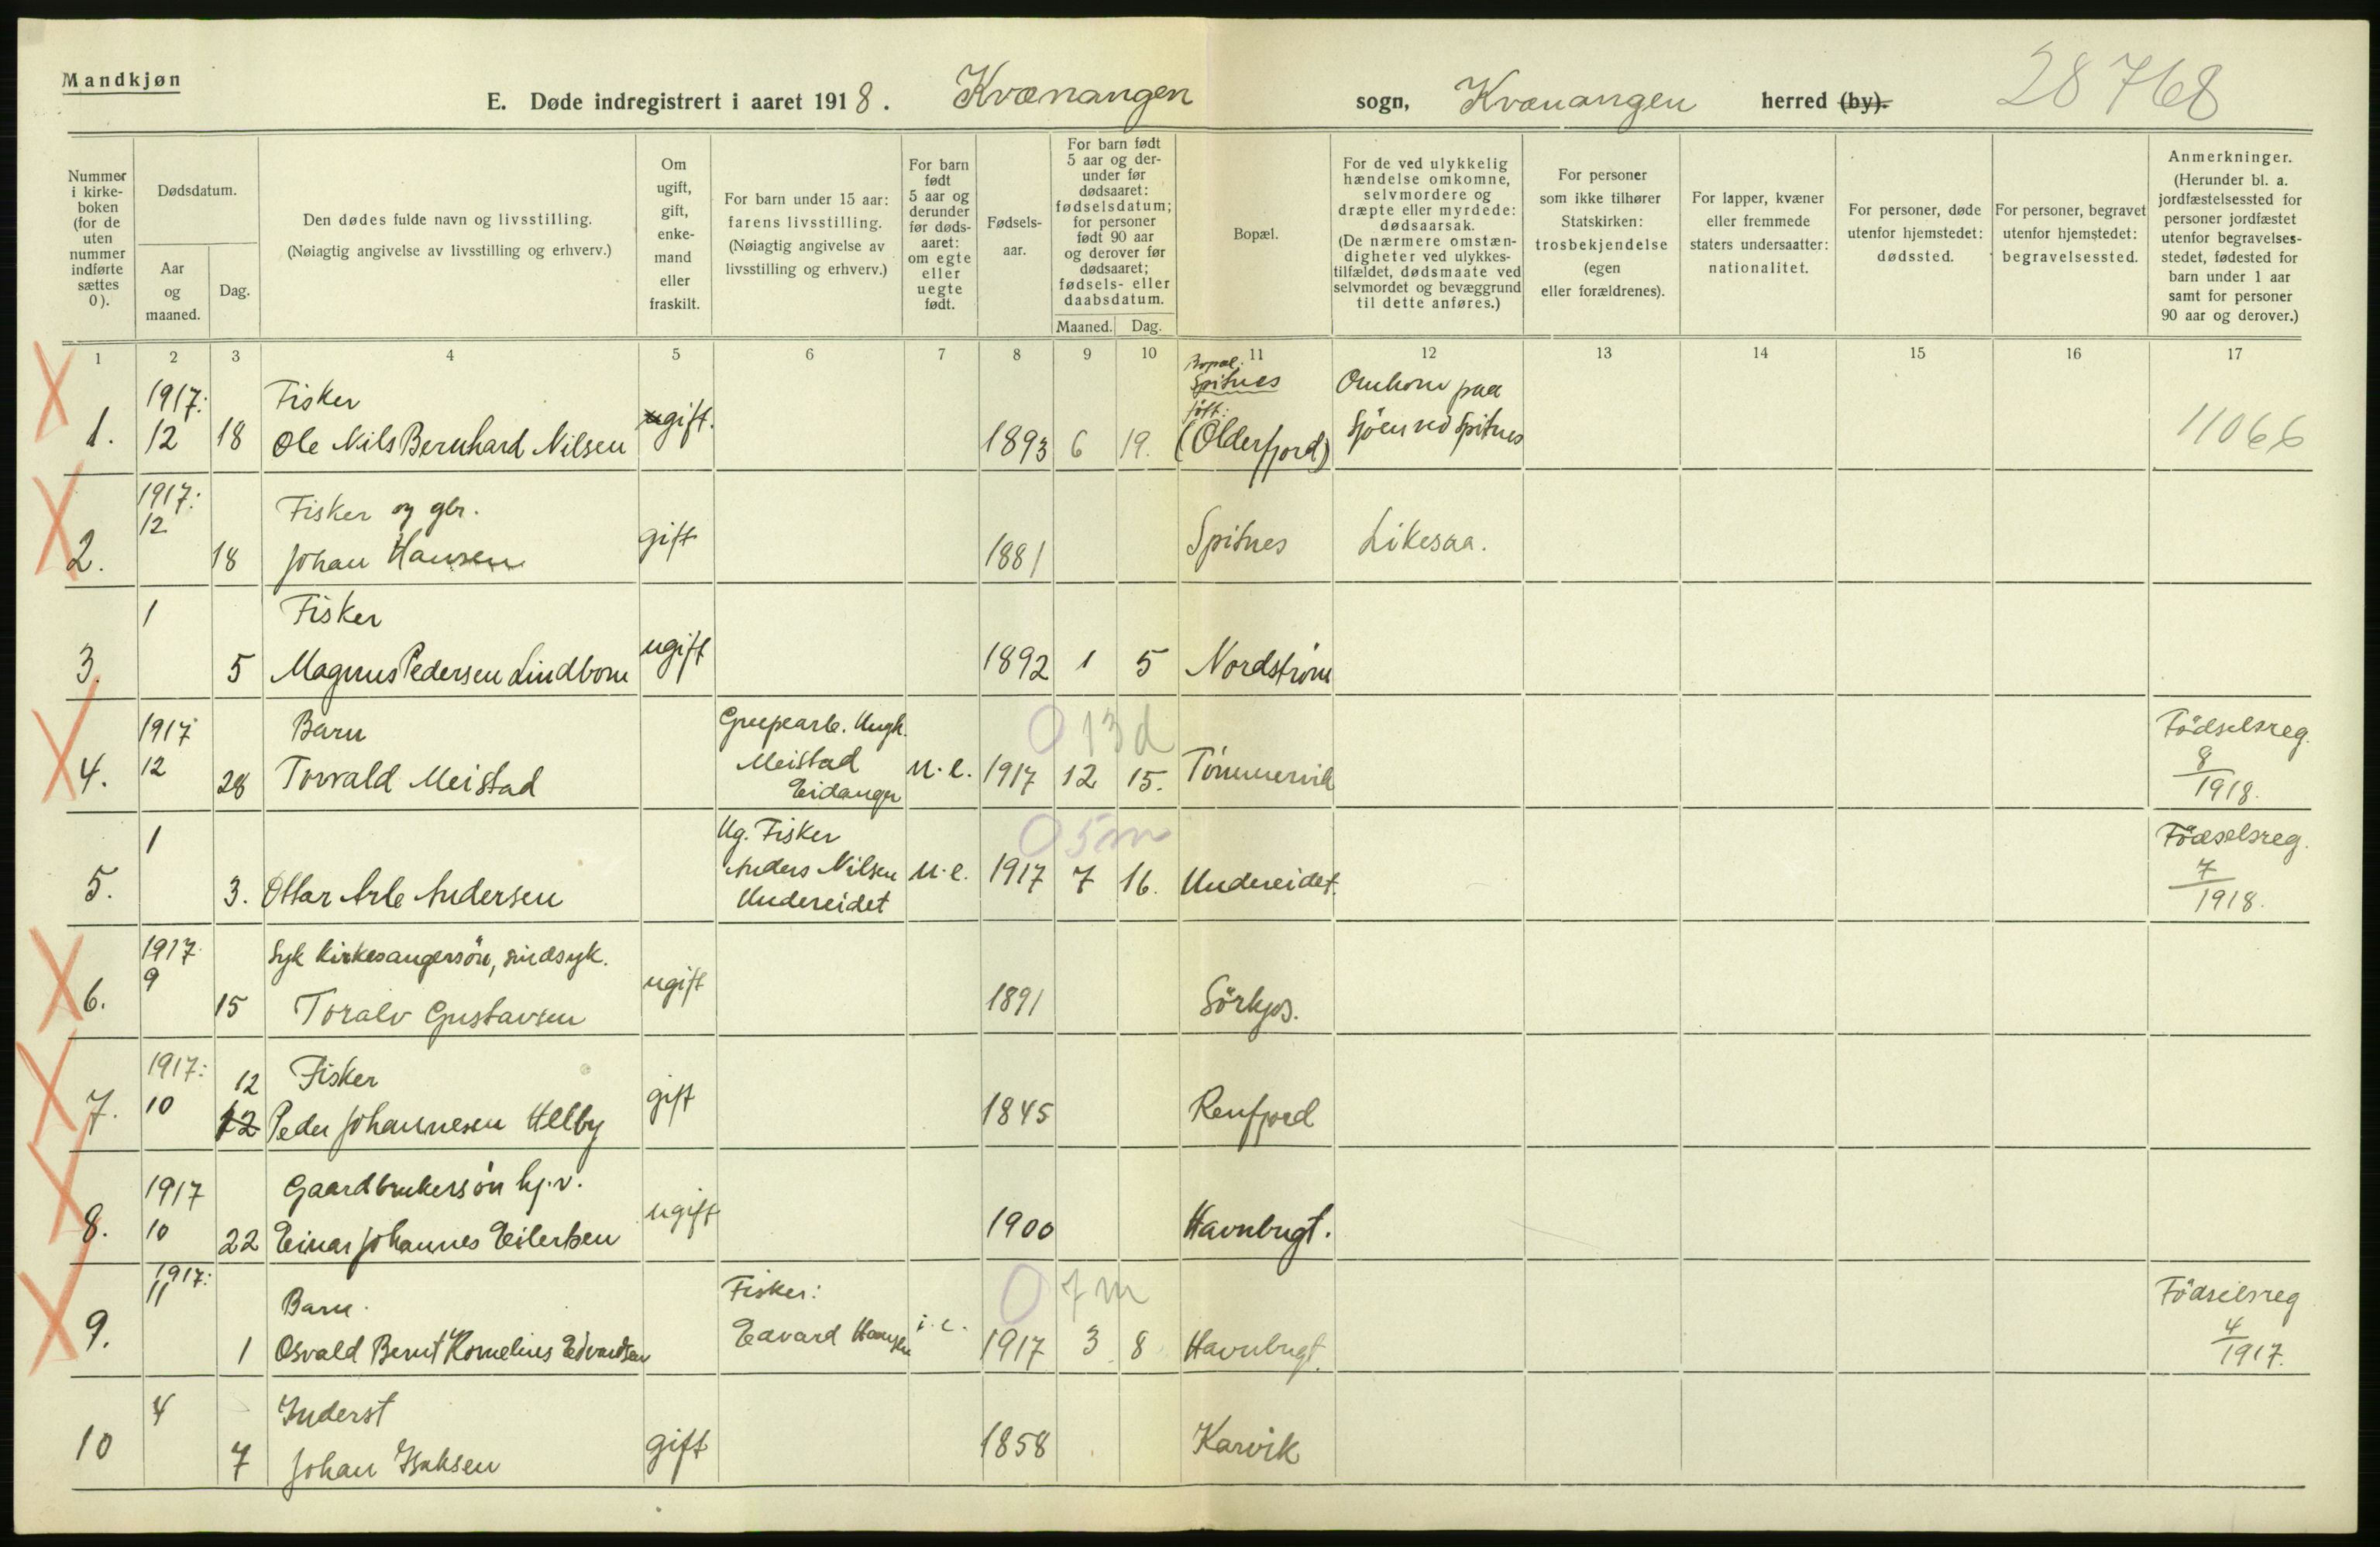 Mandkjøn
E. Døde indregistrert i aaret 1918. Kvænangen sogn, Kvænangen herred (by).
28768
Nummer i kirke-boken (for de uten nummer indførte sættes 0).
Dødsdatum.
Aar og maaned.
Dag.
Den dødes fulde navn og livsstilling.
(Nøiagtig angivelse av livsstilling og erhverv.)
Om ugift, gift, enke-mand eller fraskilt.
For barn under 15 aar: farens livsstilling. (Nøiagtig angivelse av livsstilling og erhverv.)
For barn født 5 aar og derunder før døds-aaret: om egte eller uegte født.
Fødsels-aar.
For barn født 5 aar og der-under før dødsaaret: fødselsdatum; for personer født 90 aar og derover før dødsaaret; fødsels- eller daabsdatum.
Maaned. Dag.
Bopæl.
For de ved ulykkelig hændelse omkomne, selvmordere og dræpte eller myrdede: dødsaarsak. (De nærmere omstæn-digheter ved ulykkes-tilfældet, dødsmaate ved selvmordet og bevæggrund til dette anføres.)
For personer som ikke tilhører Statskirken: trosbekjendelse (egen eller forældrenes).
For lapper, kvæner eller fremmede staters undersaatter: nationalitet.
For personer, døde utenfor hjemstedet: dødssted.
For personer, begravet utenfor hjemstedet: begravelsessted.
Anmerkninger. (Herunder bl. a. jordfæstelsessted for personer jordfæstet utenfor begravelses-stedet, fødested for barn under 1 aar samt for personer 90 aar og derover.)
1 2 3 4 5 6 7 8 9 10 11 12 13 14 15 16 17
1917: Fisker Bopæl: Spitnes Omkom paa
1. 12 18 Ole Nils Bernhard Nilsen ugift. 1893 6 19. født: (Olderfjord) Sjöen ved Spitnes 11066
1917: 12 Fisker og gbr.
2. 18 Johan Hansen gift 1881 Spitnes Likesaa.
1 Fisker
3. 5 Magnus Pedersen Lindbom ugift 1892 1 5 Nordström
1917 Barn 0 13 d Födselsreg.
4. 12 28 Torvald Meistad Meistad Eidanger u.e. 1917 12 15. Tömmervik 8/1918.
1 Ug. Fisker 0 5 m Födselsreg.
5. 3. Ottar Arle Andersen Anders Nilsen Undereidet u.e. 1917 7 16. Undereidet. 7/1918.
1917 9 Syk kirkesangersön, sindsyk.
6. 15 Toralv Gustavsen ugift 1891 Sörkjos.
1917: 12 Fisker
7. 10 12 Peder Johannesen Helby gift 1845 Renfjord
1917 Gaardbrukersön hj.v.
8. 10 22 Einar Johannes Eilertsen ugift 1900 Havnbugt.
1917: 11 Barn. Fisker: 0 7 m Födselsreg
9. 1 Osvald Bernt Kornelius Edvardsen Edvard Hansen i.e. 1917 3 8 Havnbugt. 4/1917.
4 Inderst
10 7 Johan Isaksen gift 1858 Karvik